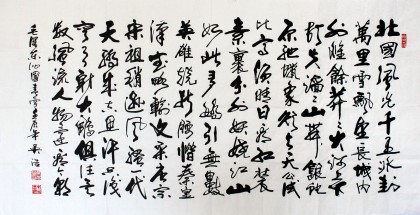 北國風光千里冰封
萬里雪飄望長城內
外惟餘莽莽大河上下
頓失滔滔山舞銀蛇
原馳蠟象欲與天公試
比高須晴日看紅裝
素裹分外妖嬈江山
如此多嬌引無數
英雄競折腰惜秦皇
漢武略輸文采唐宗
宋祖稍遜風騷一代
天驕成吉思汗只識
彎弓射大雕俱往矣
數風流人物還看今朝
毛澤東沁園春雪